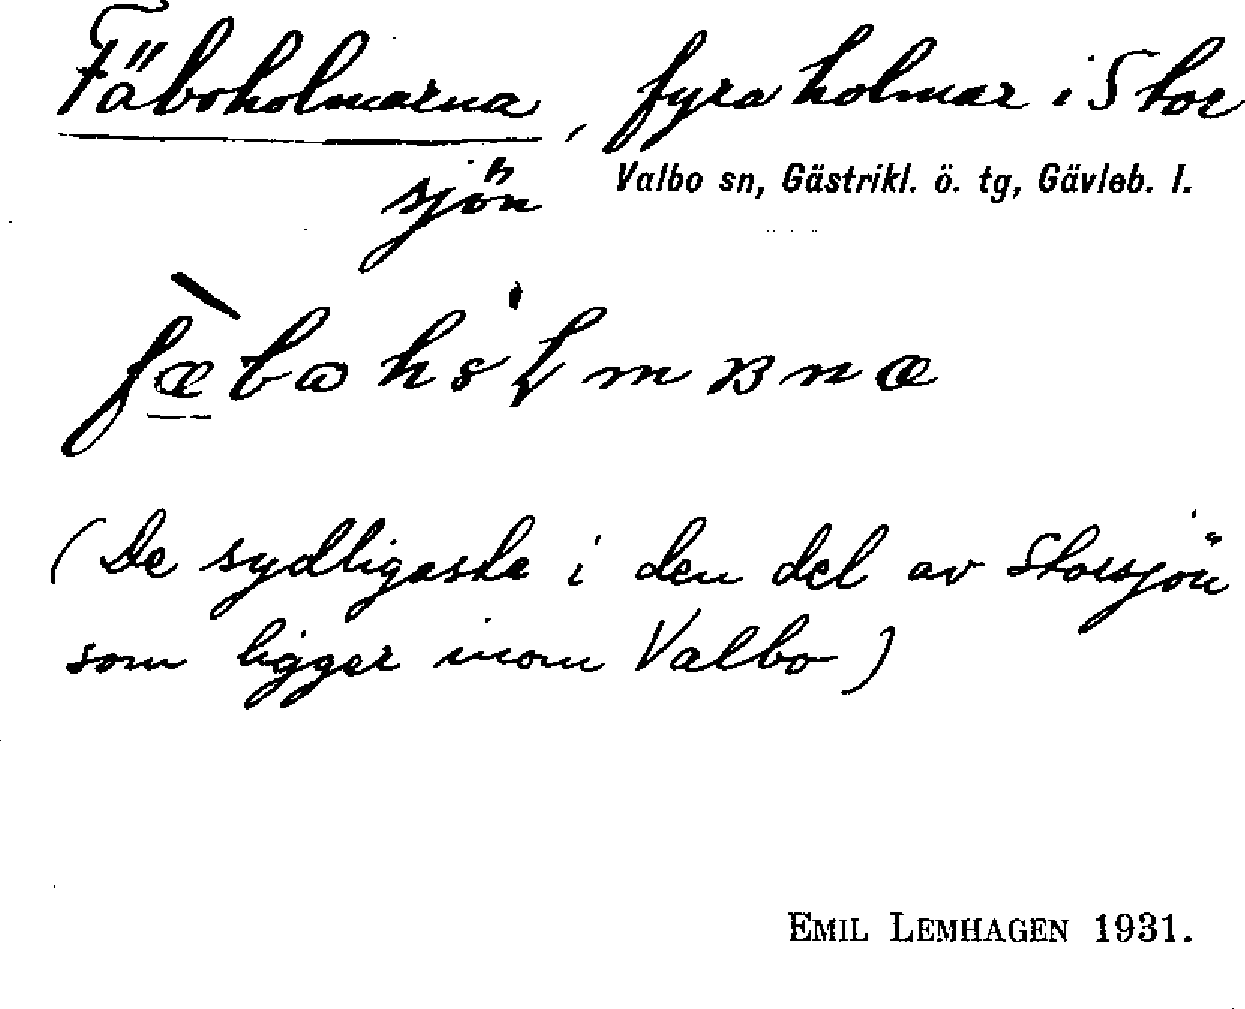 Fäboholmarna, fyra holmar i Stor
sjön
Valbo sn, Gästrikl. ö. tg, Gävleb. l.
(De sydligaste i den del av Storsjön
som ligger inom Valbo)
EMIL LEMHAGEN 1931.